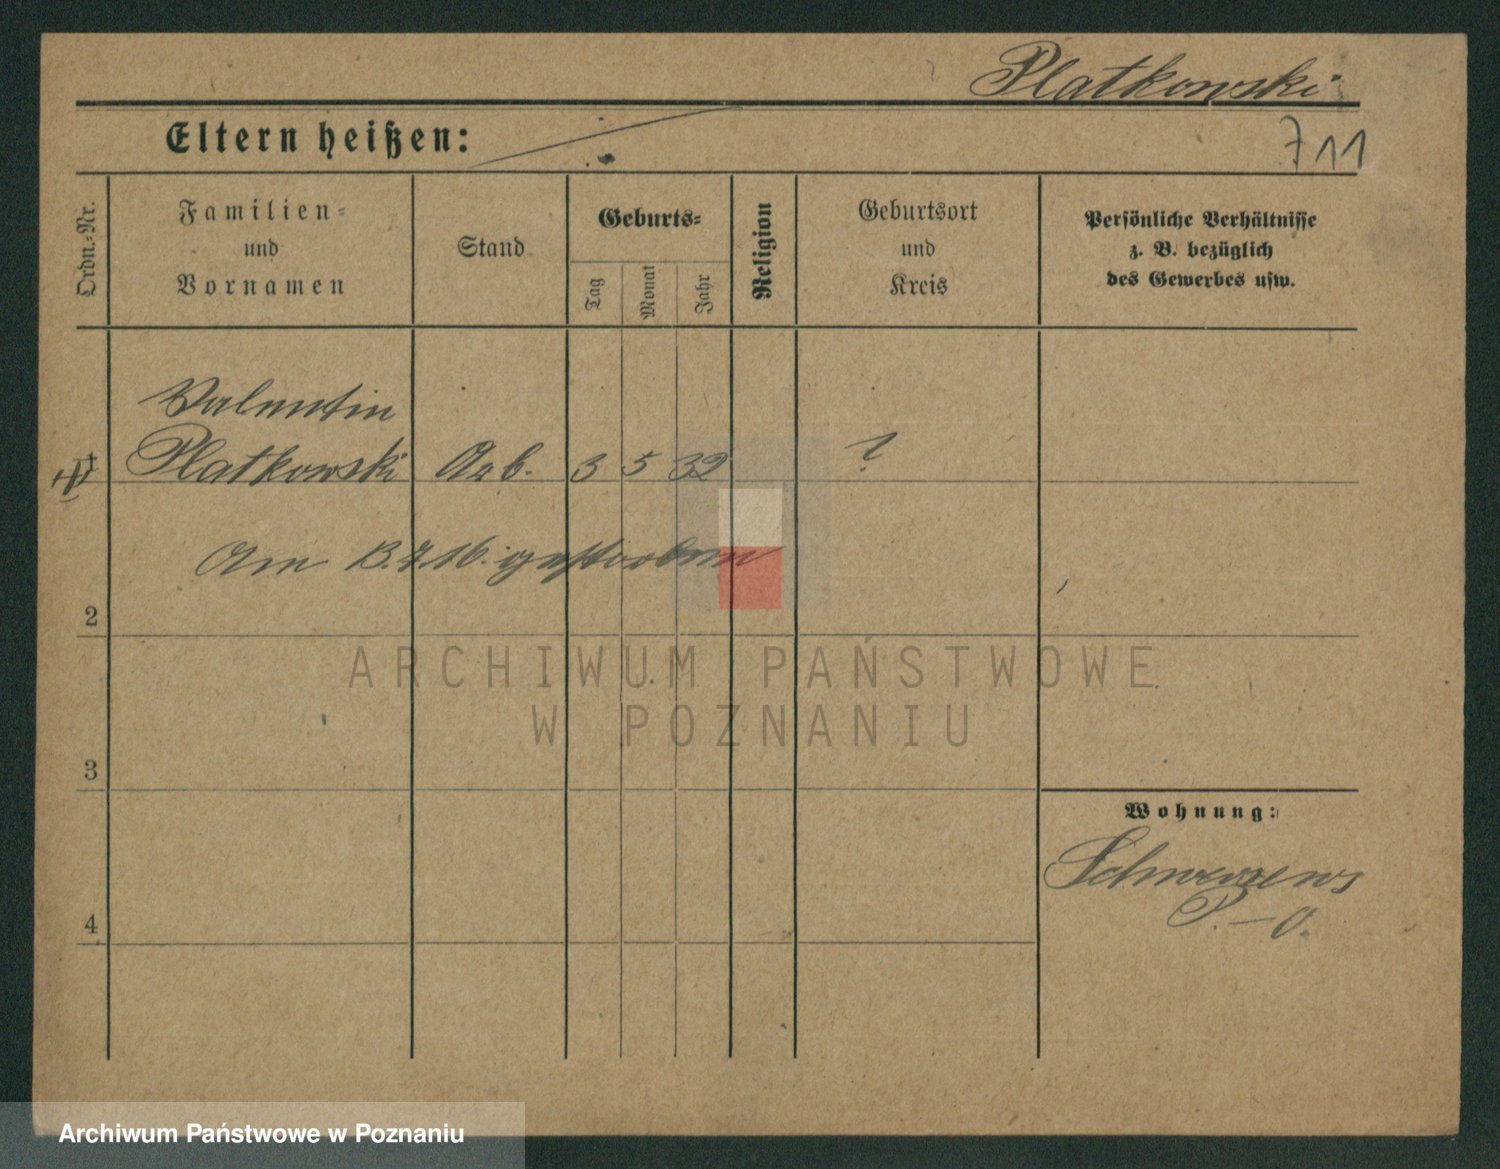 Platkowski
Eltern heißen:
711
Ordn.-Nr.
Familien-
und
Vornamen
Stand
Geburts-
Tag
Monat
Jahr
Religion
Geburtsort
und
Kreis
Persönliche Verhältnisse
z. B. bezüglich
des Gewerbes usw.
Valentin
Platkowski Arb. 3 5 32 ?
Am 13.7.16. gestorben
2
ARCHIWUM PAŃSTWOWE
W POZNANIU
3
Wohnung:
Schwersens
P.-O.
4
Archiwum Państwowe w Poznaniu